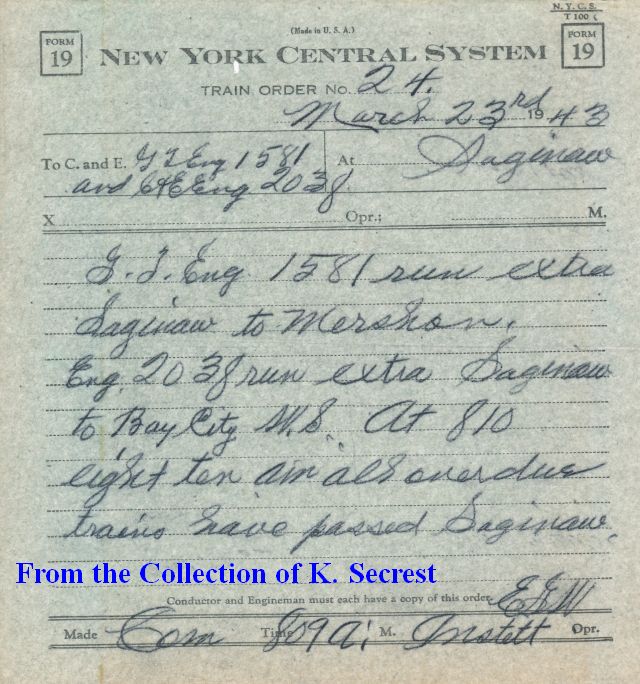 N. Y. C. S.
(Made in U. S. A.) T 100
FORM 19 NEW YORK CENTRAL SYSTEM FORM 19
TRAIN ORDER No. 24.
March 23rd 1943
To C. and E. G T Eng 1581 At Saginaw
and C&E Eng 2038
X Opr.; M.
G. T. Eng 1581 run extra
Saginaw to Mershon.
Eng. 2038 run extra Saginaw
to Bay City W.S. At 810
eight ten am all overdue
trains have passed Saginaw.
From the Collection of K. Secrest
Conductor and Engineman must each have a copy of this order.
Made Com Time 809 A. M. Opr.